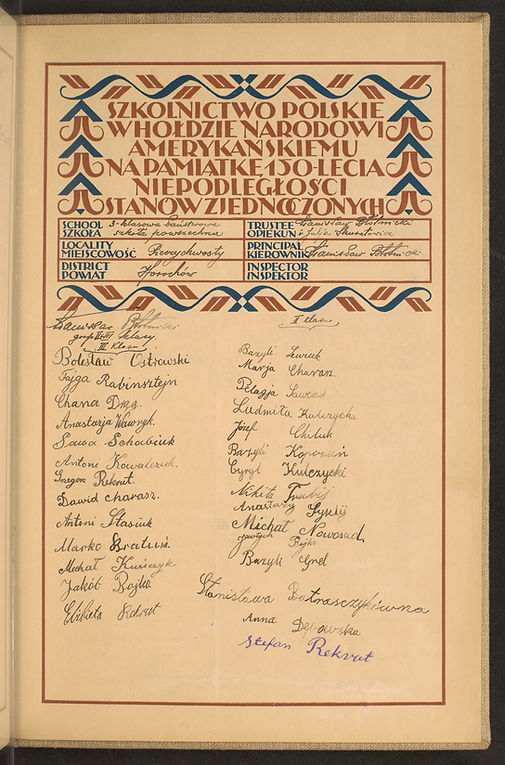 SZKOLNICTWO POLSKIE
W HOŁDZIE NARODOWI
AMERYKAŃSKIEMU
NA PAMIĄTKĘ 150-LECIA
NIEPODLEGŁOŚCI
STANÓW ZJEDNOCZONYCH
SCHOOL
SZKOŁA
3-klasowa państwowa
szkoła powszechna
TRUSTEE
OPIEKUN
Stanisław Błotnicki
i Julia
LOCALITY
MIEJSCOWOŚĆ
PRINCIPAL
KIEROWNIK
Stanisław Błotnicki
DISTRICT
POWIAT
Horochów
INSPECTOR
INSPEKTOR
Stanisław Błotnicki
III Klasa
Bolesław Ostrowski
Fajga Rabinsztejn
Chana
Anastazja Wawryk.
Sawa Schabiuk
Antoni Kowalczuk.
Rekrut.
Dawid Charasz.
Antoni Stasiuk
Marko
Michał
Jakób Bojko.
Elżbieta Rekrut
II klasa
Bazyli
Marja Charasz.
Pelagja Sawczuk
Ludmiła Kulczycka
Józef Chiluk
Bazyli
Cyryl Kulczycki
Nikita
Anastazy
Michał Nowosad
Bojko
Bazyli Gnel
Stanisława Patrasczykówna
Anna Dąbowska
Stefan Rekrut